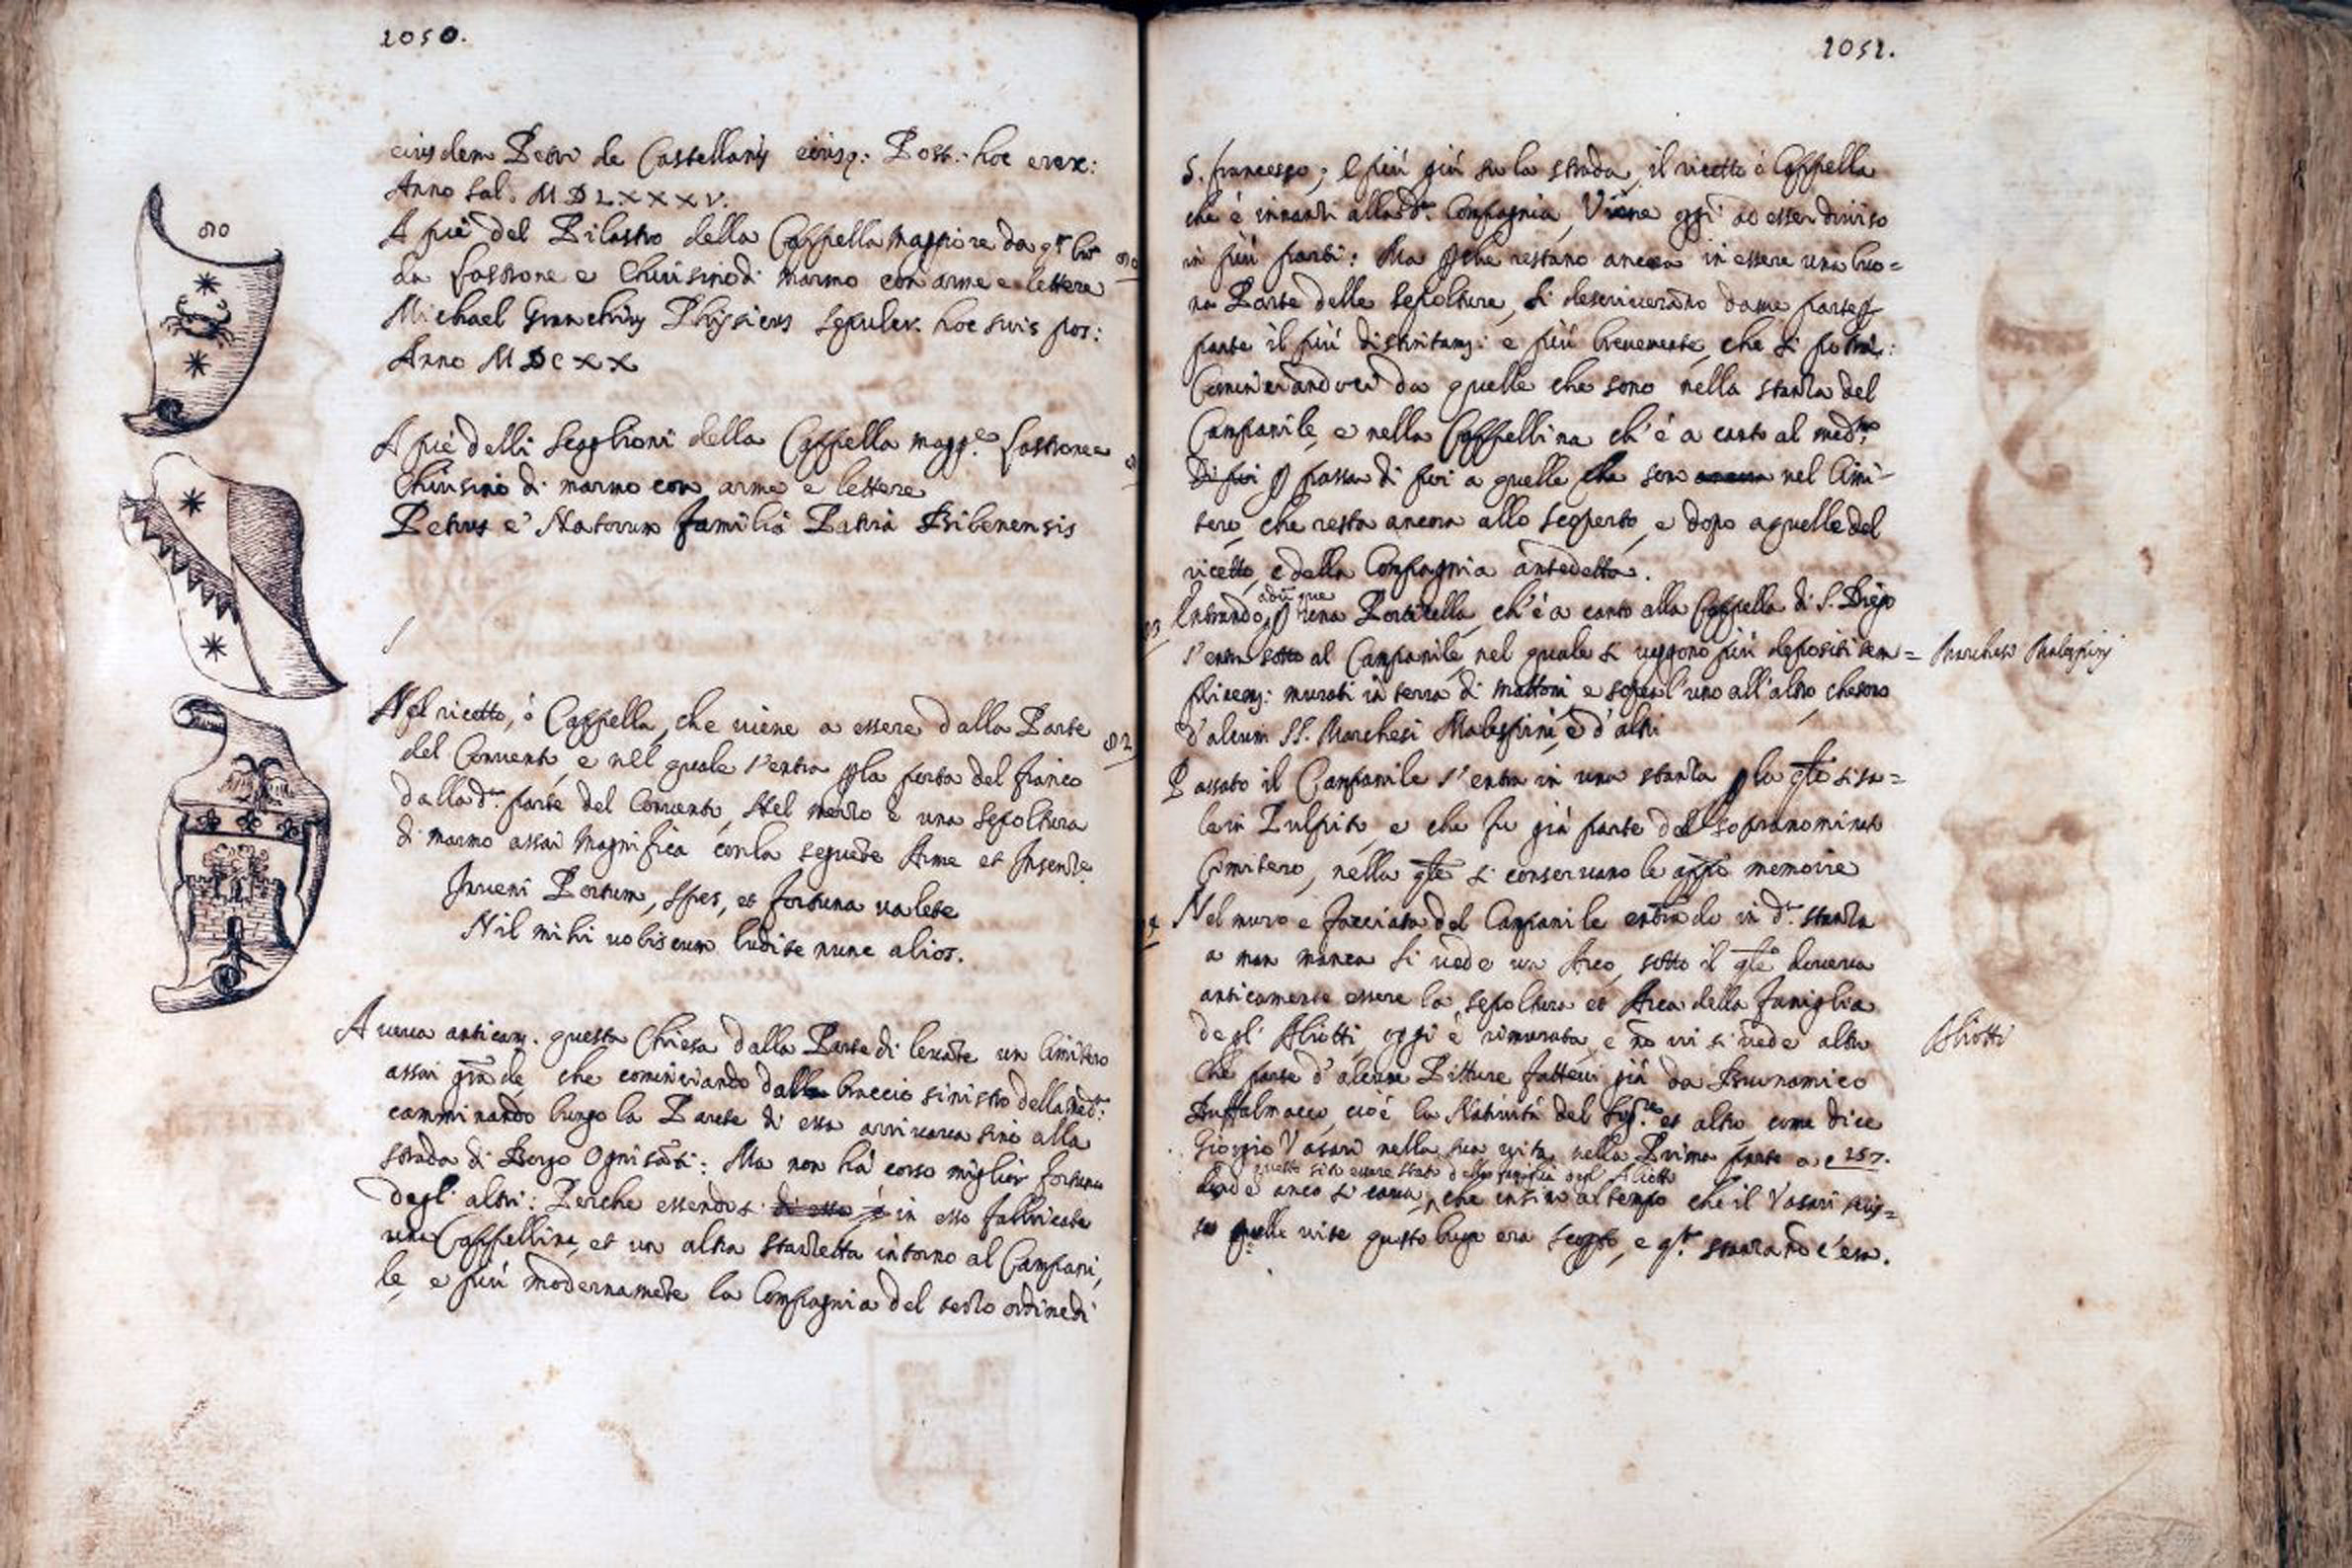 1050.
eiusdem Petri de Castellanis eiusq: Post: hoc erex:
Anno Sal. MDLXXXV.
A piè del Pilastro della Cappella Maggiore da
lastrone e Chiusino di marmo con arme e lettere
Michael Granchius Phisicus sepulcr. hoc suis pos:
Anno MDCXX
A piè delli scaglioni della Cappella magg.e lastrone e
Chiusino di marmo con arme e lettere
Petrus è Natorum familia Patria Bibenensis
Nel ricetto, ò Cappella, che viene a essere dalla Parte
del Convento, e nel quale s'entra p la porta del fianco
dalla d.a parte del Convento, Nel mezzo è una sepoltura
di marmo assai magnifica con la seguēte Arme et Inscriz.e
Inveni Portum, spes, et fortuna valete
Nil mihi vobiscum ludite nunc alios.
Aveva anticam. questa Chiesa dalla Parte di levāte un Cimitero
assai grāde, che cominciando dalla braccio sinistro della med.a:
camminando lungo la Parete di essa arrivava sino alla
strada di Borgo Ognisāti: Ma non hà corso miglior fortuna
degl' altri: Perche essendosi di esso è in esso fabbricata
una Cappellina, et un altra stanzetta intorno al Campani,
le, e più modernamēte la Compagnia del terzo ordine di
80
82
1051.
S. francesco; e più giù su la strada, il ricetto ò Cappella
che è innanzi alla d.a Compagnia, Viene oggi ad esser diviso
in più parti: Ma pche restano ancora in essere una buo=
na Parte delle sepolture, si descriveranno da me parte p
parte il più distintam: e più brevemente, che si potrà:
Cominciandoci da quelle che sono nella stanza del
Campanile, e nella Cappellina ch'è a canto al med.mo
Di poi p passa di fuori a quelle che sono ancora nel Cimi-
tero, che resta ancora allo scoperto, e dopo a quelle del
ricetto, e della Compagnia antedetta.
adūque
Entrando p una Porticella, ch'è a canto alla Cappella di S. Diego
s'entra sotto al Campanile, nel quale si veggono più depositi sem=
plicem: murati in terra di mattoni e sopra l'uno all'altro, che sono
d'alcuni SS. Marchesi Malespini, e d'altri
Marchesi Malespini
Passato il Campanile s'entra in una stanza p la qle si sa=
le in Pulpito, e che fu già parte del sopranominato
Cimitero, nella qle si conservano le appo memorie
Nel muro e facciata del Campanile entrādo in d.a stanza
a man manca si vede un Arco, sotto il qle doveva
anticamente essere la sepoltura et Arca della famiglia
degl' Aliotti, oggi è rimurata, e nō vi si vede altro
Aliotti
che parte d'alcune Pitture fattevi già da Buonamico
Buffalmacco, cioè la Natività del Sig.re et altro, come dice
Giorgio Vasari nella sua vita nella Prima parte a c 157.
questo sito essere stato della famiglia degl' Aliotti
Onde anco si cava, che insino a tempo che il Vasari scris=
se quelle vite questo luogo era scopto, e q.ta stanza nō c'era.